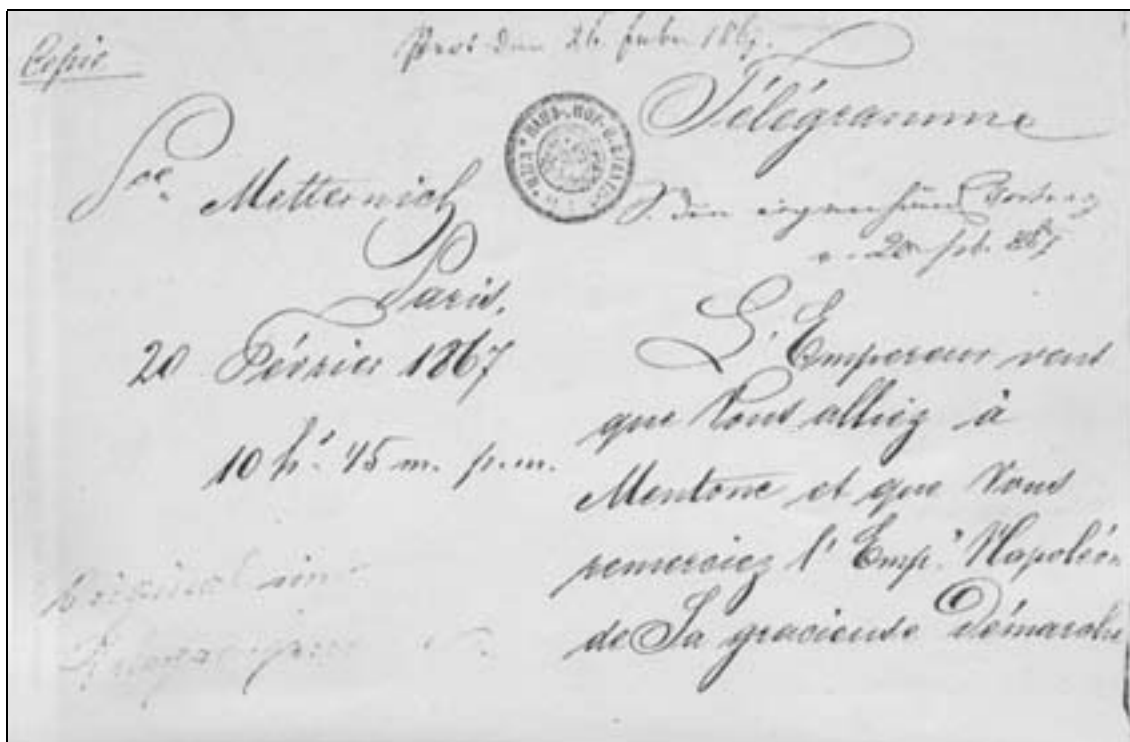 Copie
den 26. Febr. 1867.
Télégramme
Pce. Metternich
Paris.
20 Février 1867
10 h. 45 m. p.m.
20. Feb. 867
L'Empereur veut
que Vous alliez à
Mentone et que Vous
remerciez l'Emp. Napoléon
de Sa gracieuse Démarche
Original
HAUS-, HOF- U. STAATS